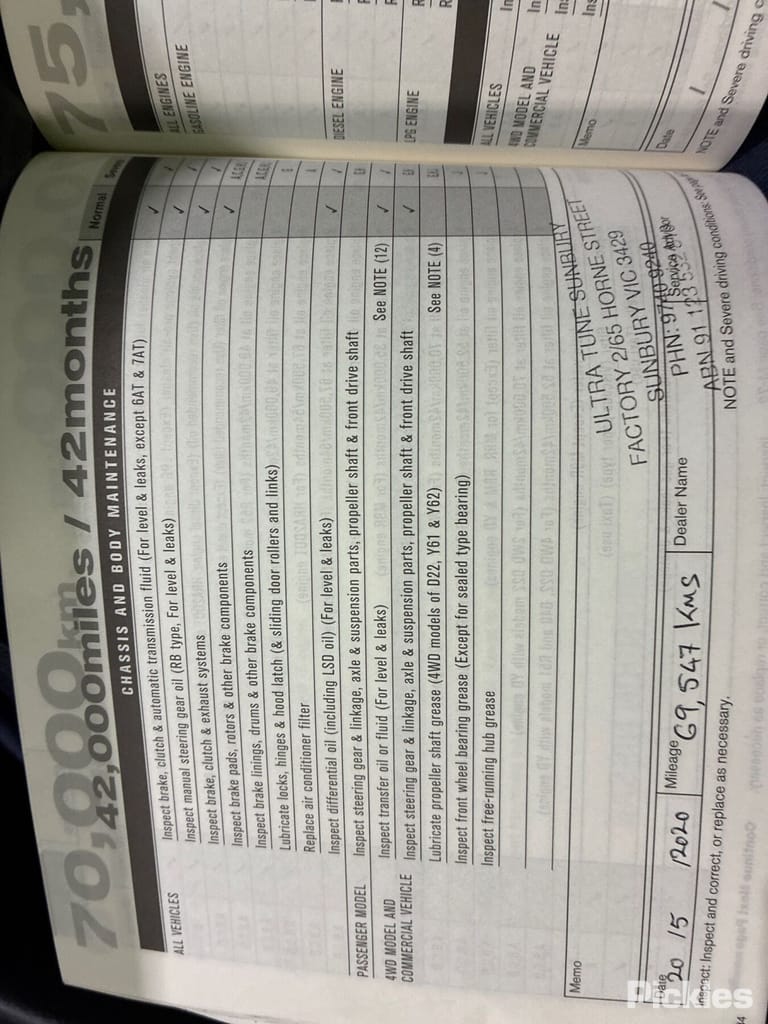 70,000km
42,000miles / 42months
Normal Severe
CHASSIS AND BODY MAINTENANCE
ALL VEHICLES
Inspect brake, clutch & automatic transmission fluid (For level & leaks, except 6AT & 7AT) ✓
Inspect manual steering gear oil (RB type, For level & leaks) ✓
Inspect brake, clutch & exhaust systems ✓
Inspect brake pads, rotors & other brake components ✓
Inspect brake linings, drums & other brake components
Lubricate locks, hinges & hood latch (& sliding door rollers and links)
Replace air conditioner filter
Inspect differential oil (including LSD oil) (For level & leaks) ✓
PASSENGER MODEL
Inspect steering gear & linkage, axle & suspension parts, propeller shaft & front drive shaft
4WD MODEL AND
COMMERCIAL VEHICLE
Inspect transfer oil or fluid (For level & leaks) See NOTE (12) ✓
Inspect steering gear & linkage, axle & suspension parts, propeller shaft & front drive shaft ✓
Lubricate propeller shaft grease (4WD models of D22, Y61 & Y62) See NOTE (4)
Inspect front wheel bearing grease (Except for sealed type bearing)
Inspect free-running hub grease
Memo
ULTRA TUNE SUNBURY
FACTORY 2/65 HORNE STREET
SUNBURY VIC 3429
PHN: 9740 9240
ABN 91 123
Date
20 / 5 / 2020
Mileage
69,547 KMS
Dealer Name
Service Advisor
Inspect: Inspect and correct, or replace as necessary.
NOTE and Severe driving conditions: See
75,
ALL ENGINES
GASOLINE ENGINE
DIESEL ENGINE
LPG ENGINE
ALL VEHICLES
4WD MODEL AND
COMMERCIAL VEHICLE
Memo
Date
/ /
NOTE and Severe driving c
Pickles